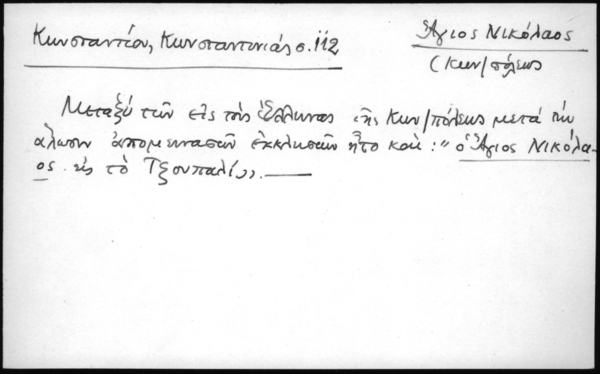 Κωνσταντίου, Κωνσταντινιάς σ. 112
Ἅγιος Νικόλαος
(Κων/πόλεως
Μεταξύ τῶν εἰς τούς Ἕλληνας τῆς Κων/πόλεως μετά τήν
ἅλωσιν ἀπομεινασῶν ἐκκλησιῶν ἦτο καί: "ὁ Ἅγιος Νικόλα-
ος εἰς τό Τζουπαλί,,.